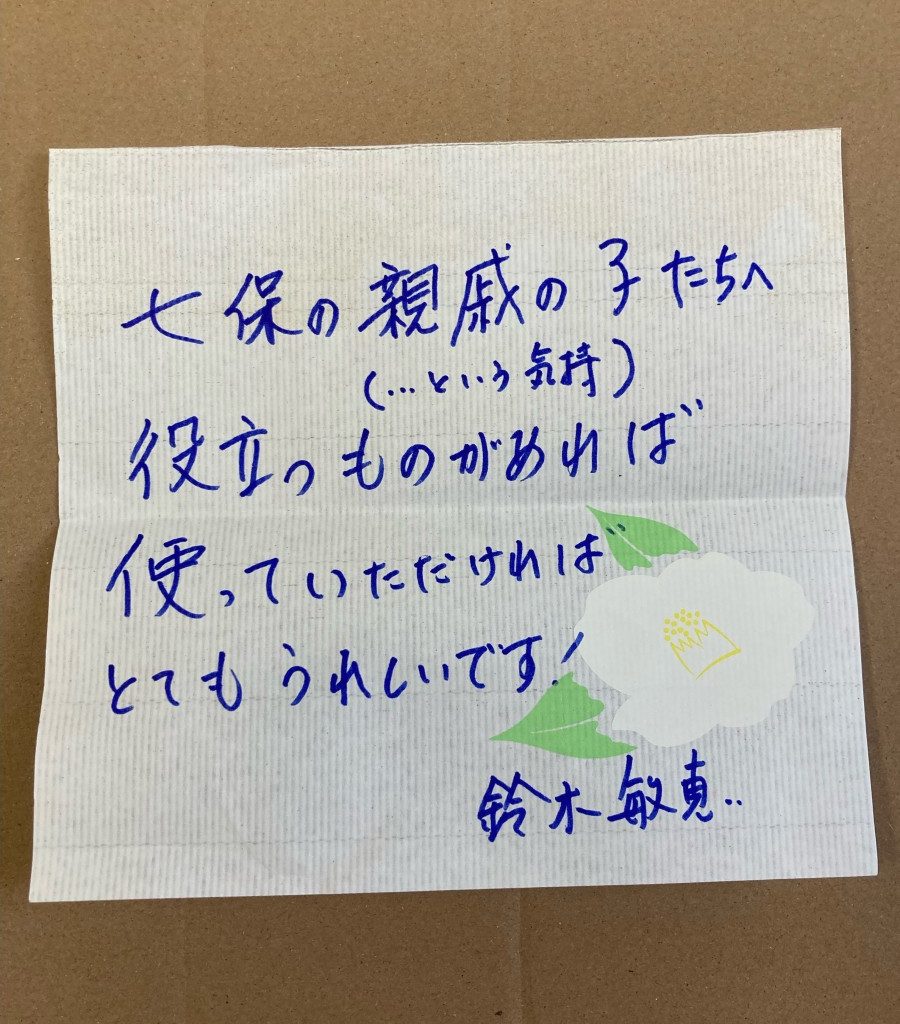 七保の親戚の子たちへ
(…という気持)
役立つものがあれば
使っていただければ
とてもうれしいです!
鈴木敏恵..